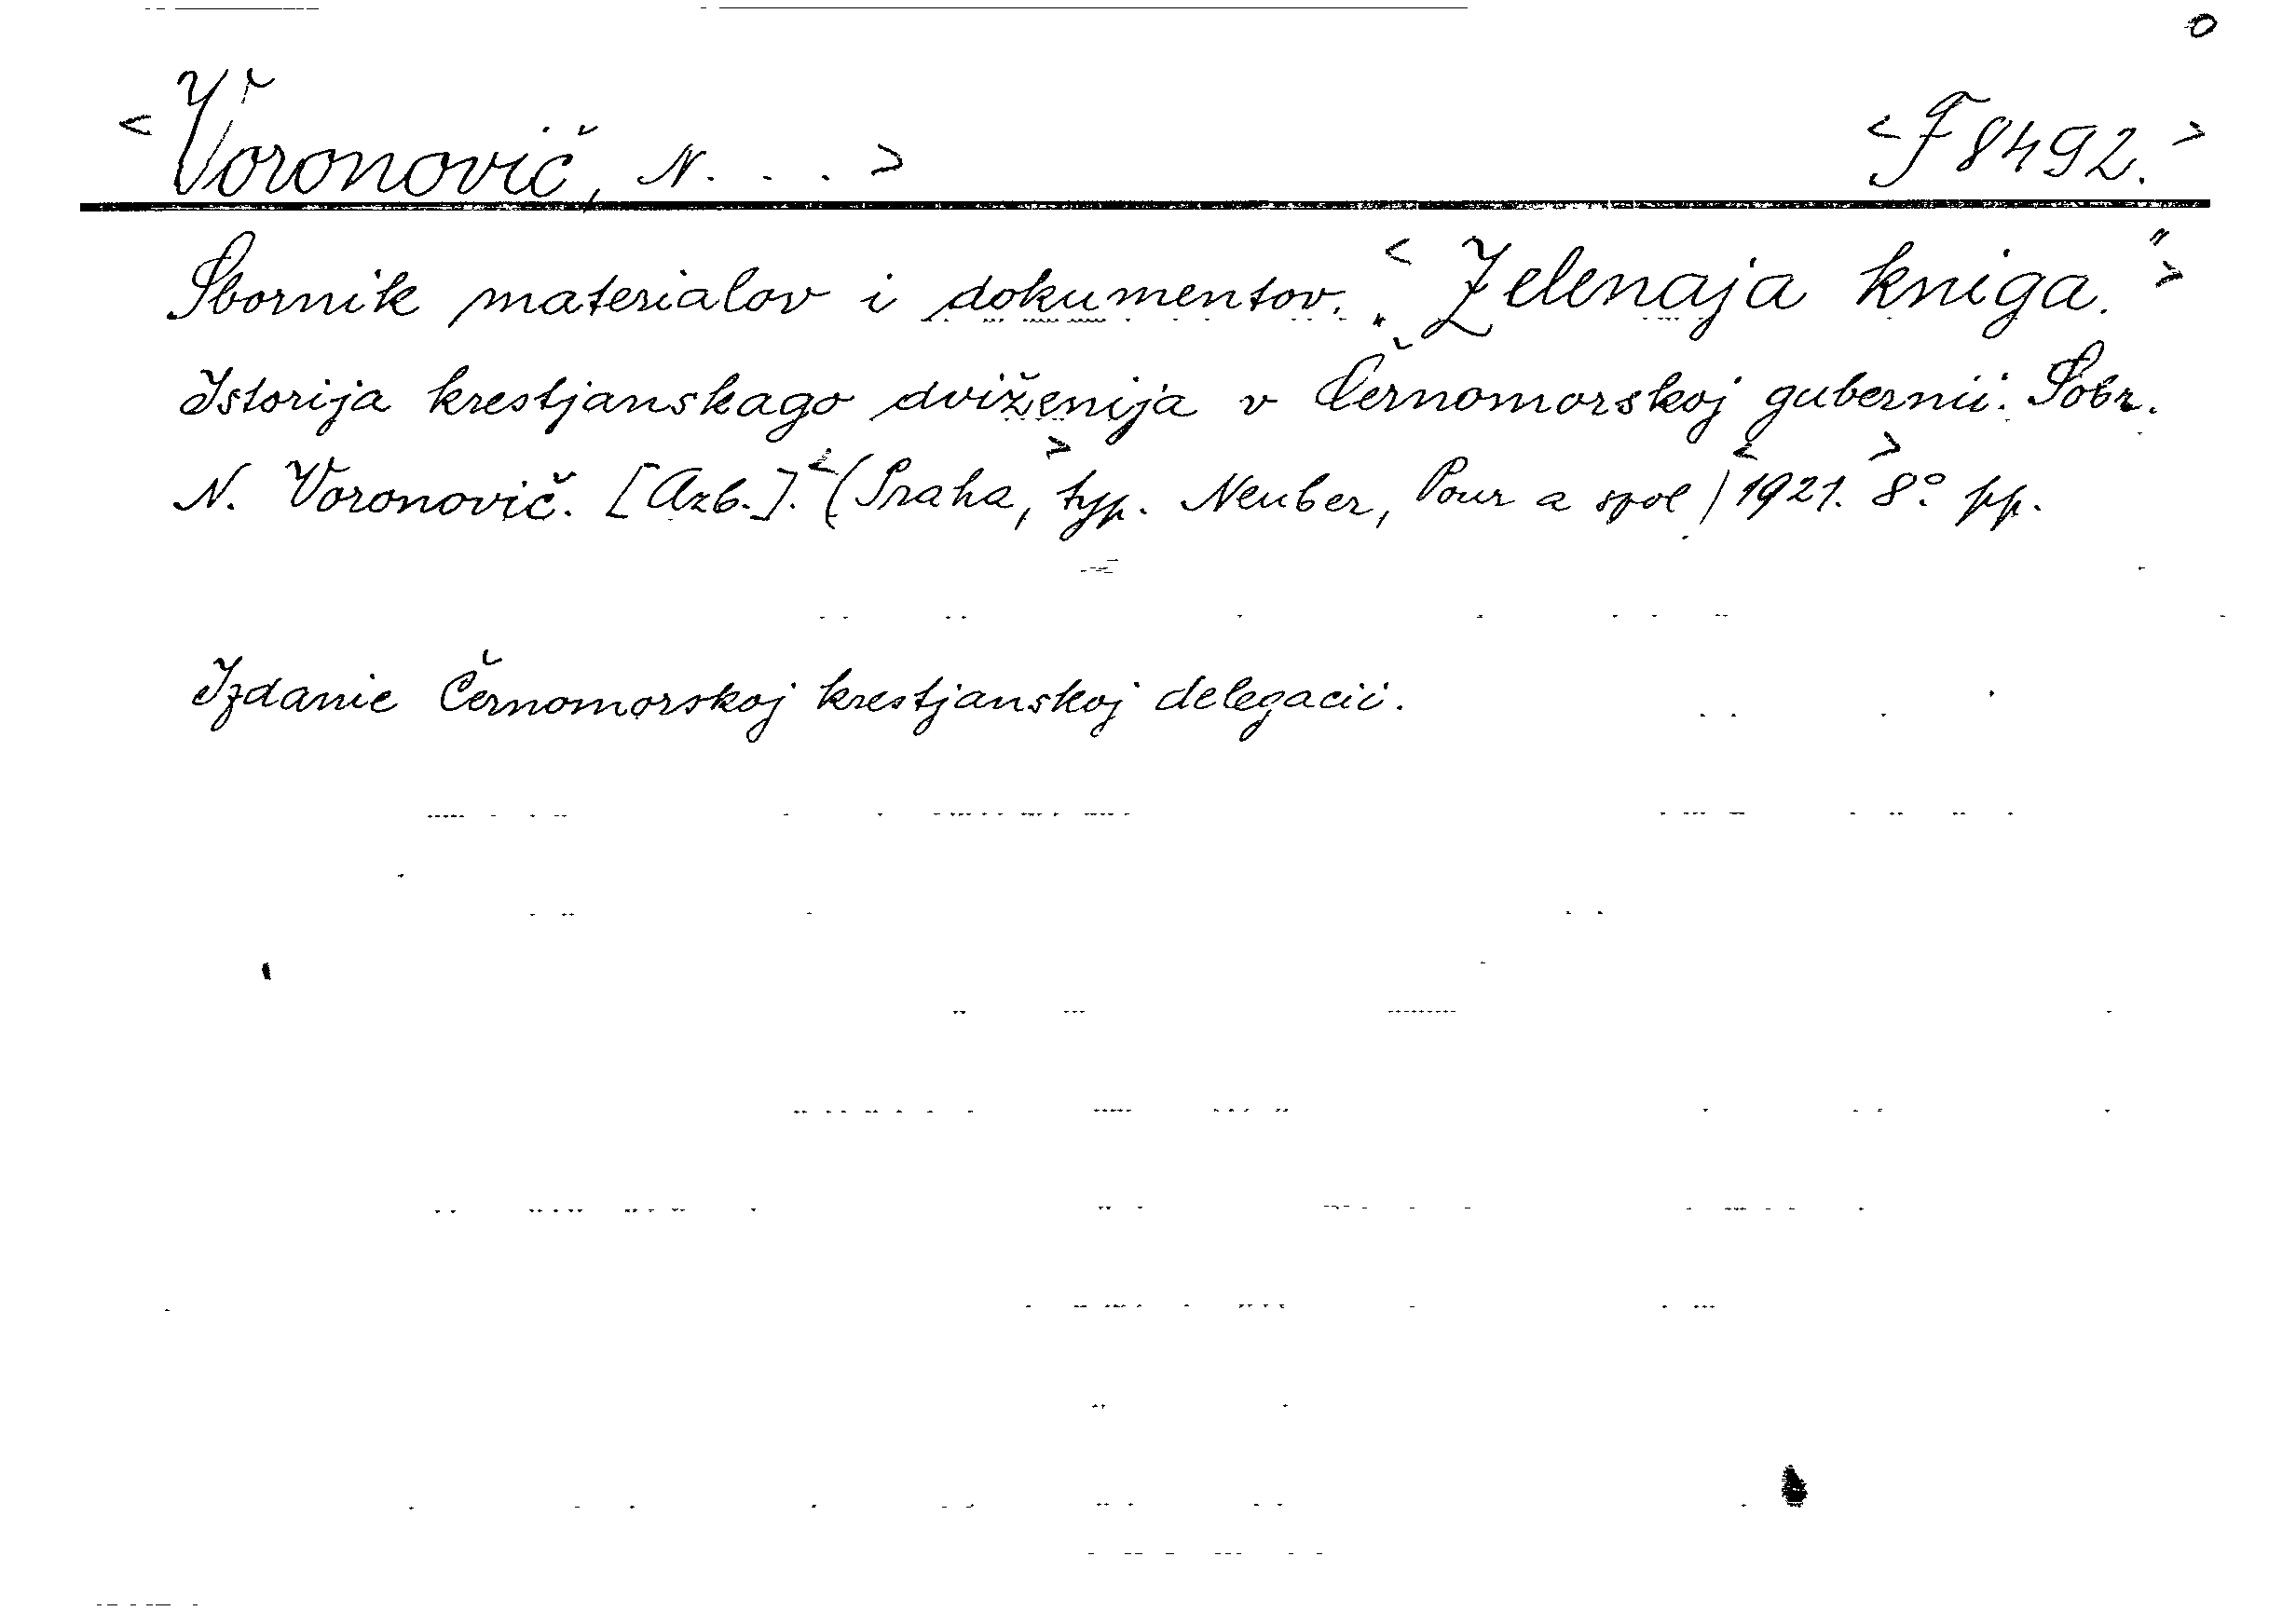 <Voronovič, N. . . > <F 8492.>
Sbornik materialov i dokumentov. <„Zelenaja kniga.">
Istorija krestjanskago dviženija v Černomorskoj gubernii. Sobr.
N. Voronovič. [Azb.]. <(Praha,> typ. Neuber, Pour a spol) <1921. 8°.> pp.
Izdanie Černomorskoj krestjanskoj delegacii.